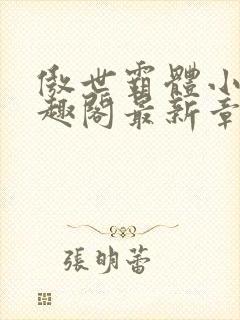 傲世霸體小
趣閣最新章
張明蕾